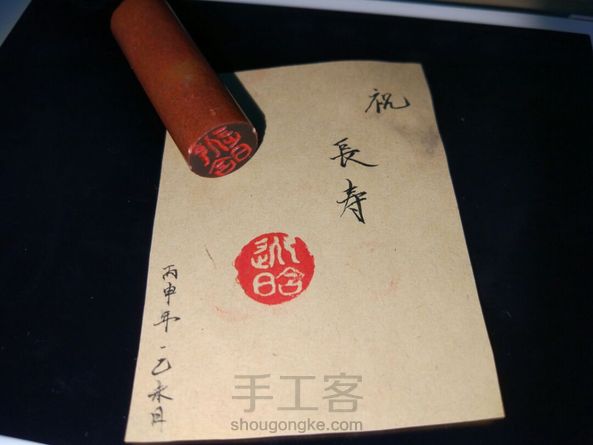 祝
長寿
晗
丙申年·乙未月
手工客
shougongke.com